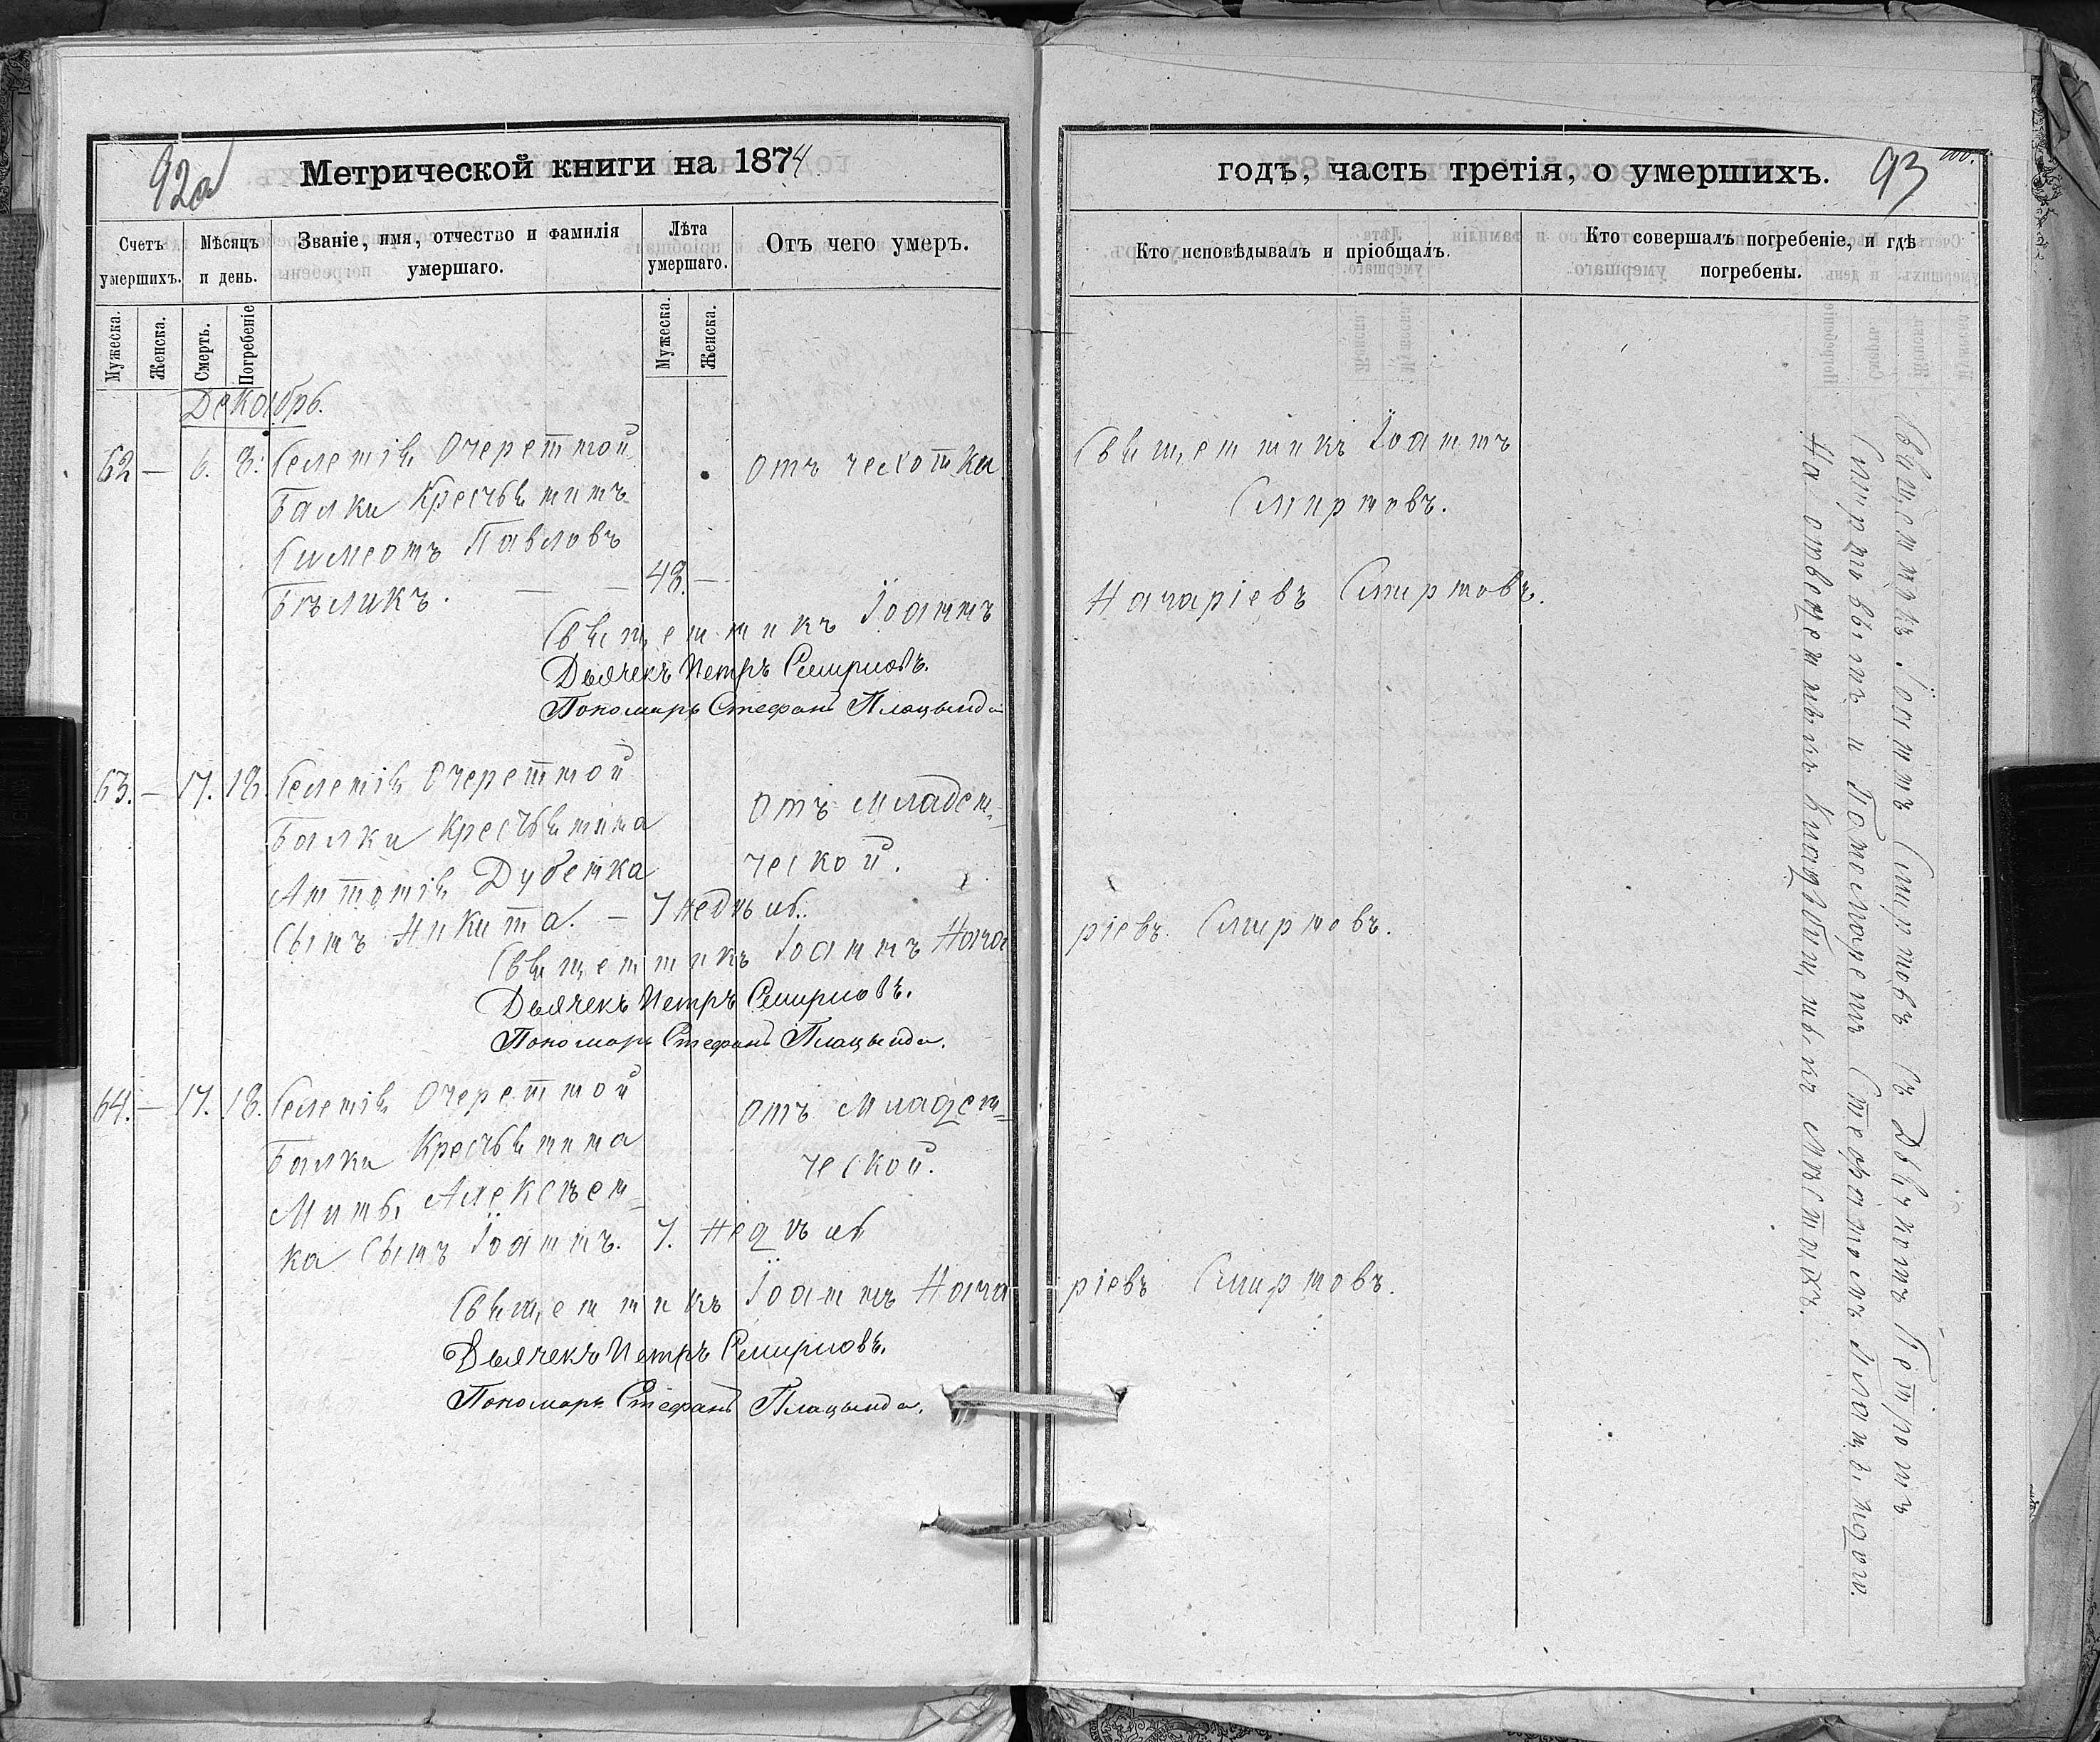 92а
Метрической книги на 1874
Счетъ умершихъ.
Мѣсяцъ и день.
Званіе, имя, отчество и фамилія умершаго.
Лѣта умершаго.
Отъ чего умеръ.
Мужеска.
Женска.
Смерть.
Погребеніе
Мужеска.
Женска.
Декабрь.
62 — 6. 8. Селенія Очеретной отъ чехотки
Балки Крестьянинъ
Симеонъ Павловъ
Бѣликъ. — — 48. —
Священникъ Іоаннъ
Дьячекъ Петръ Смирновъ.
Пономарь Стефанъ Плацында
63. — 17. 18. Селенія Очеретной
Балки Крестьянина Отъ Младен-
Антонія Дубенка ческой.
Сынъ Никита. — 7 недѣль.
Священникъ Іоаннъ Нача
Дьячекъ Петръ Смирновъ.
Пономарь Стефанъ Плацында.
64. — 17. 18. Селенія Очеретной отъ Младен-
Балки Крестьянина ческой.
Алексѣен-
ка Сынъ Іоаннъ. 7. недѣль
Священникъ Іоаннъ Нача
Дьячекъ Петръ Смирновъ.
Пономарь Стефанъ Плацында.
годъ, часть третія, о умершихъ.
93
Кто исповѣдывалъ и пріобщалъ.
Кто совершалъ погребеніе, и гдѣ погребены.
Священникъ Іоаннъ
Смирновъ.
Начаріевъ Смирновъ.
ріевъ Смирновъ.
ріевъ Смирновъ.
Священникъ Іоаннъ Смирновъ съ Дьячкомъ Петромъ
Смирновымъ и Пономаремъ Стефаномъ Плацындою.
На отведенныхъ Кладбищныхъ Мѣстахъ.